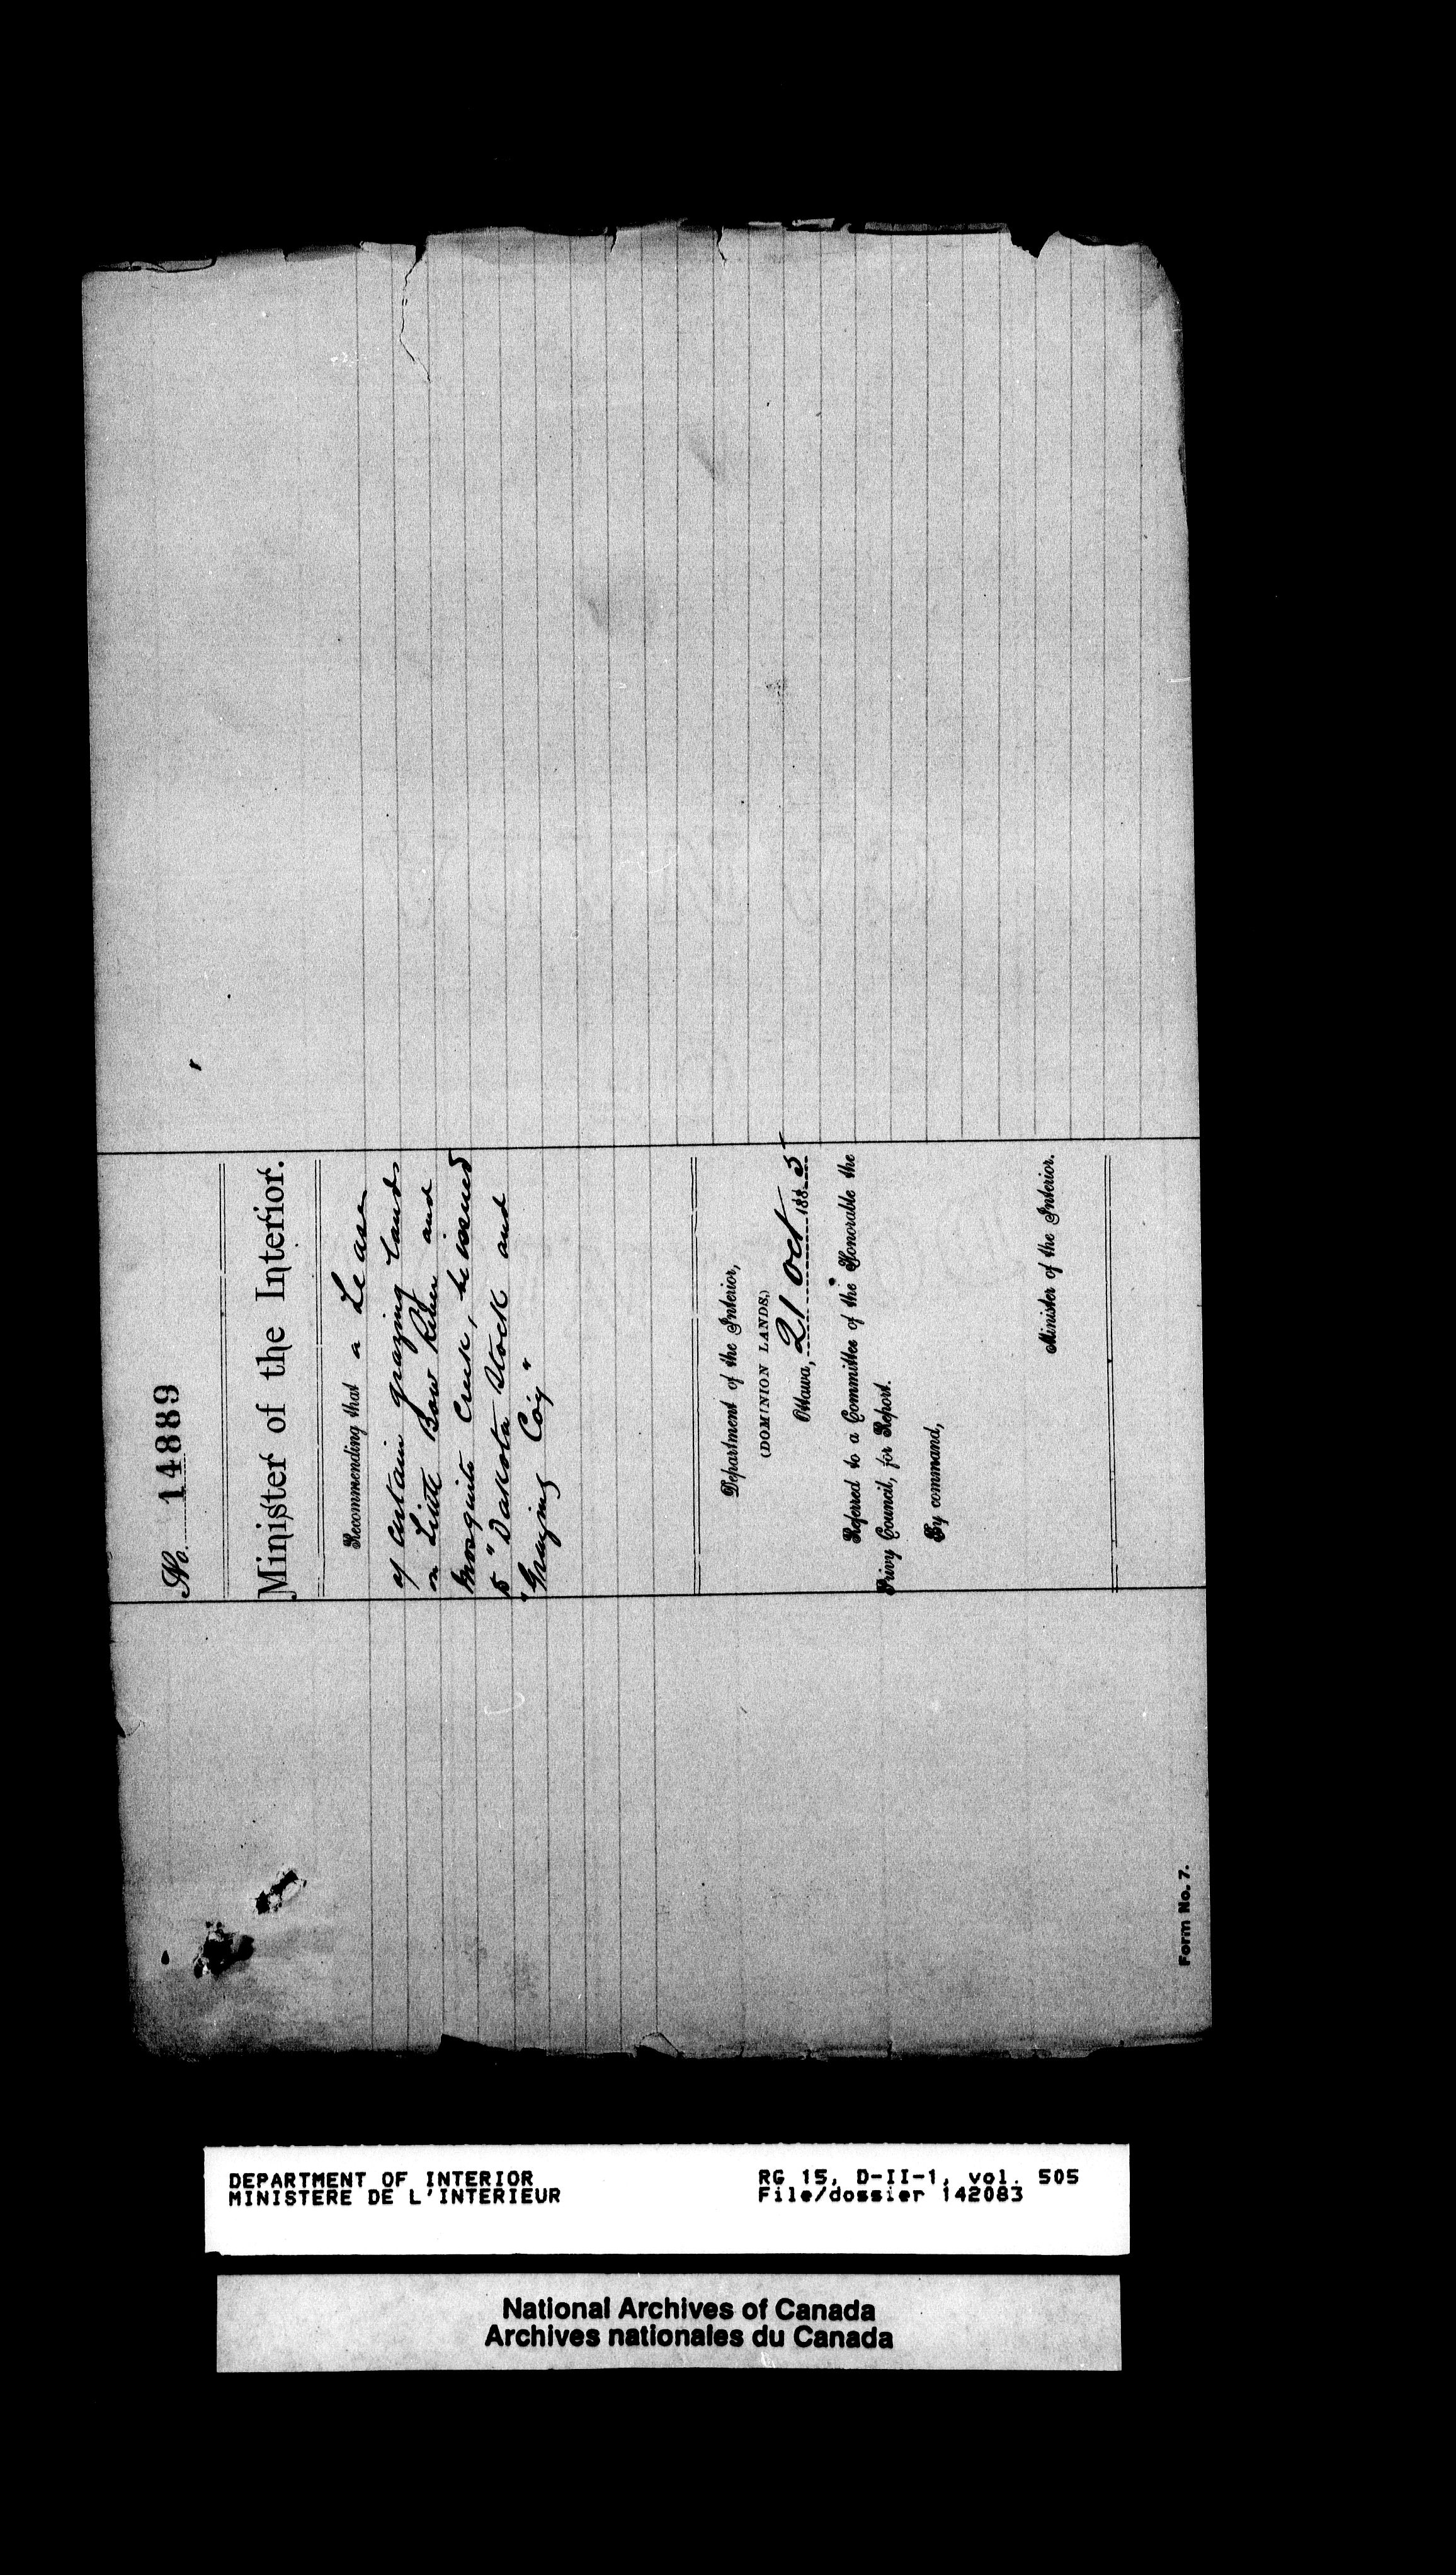 No. 14889
Minister of the Interior.
Recommending that a Lease
of certain grazing lands
on Little Bow River and
Mosquito Creek, be issued
to "Dakota Stock and
"Grazing Coy"
Department of the Interior,
(DOMINION LANDS,)
Ottawa, 21 Oct 1885
Referred to a Committee of the Honorable the
Privy Council, for Report.
By command,
Minister of the Interior.
Form No. 7.
DEPARTMENT OF INTERIOR
MINISTERE DE L'INTERIEUR
RG 15, D-II-1, vol. 505
File/dossier 142083
National Archives of Canada
Archives nationales du Canada